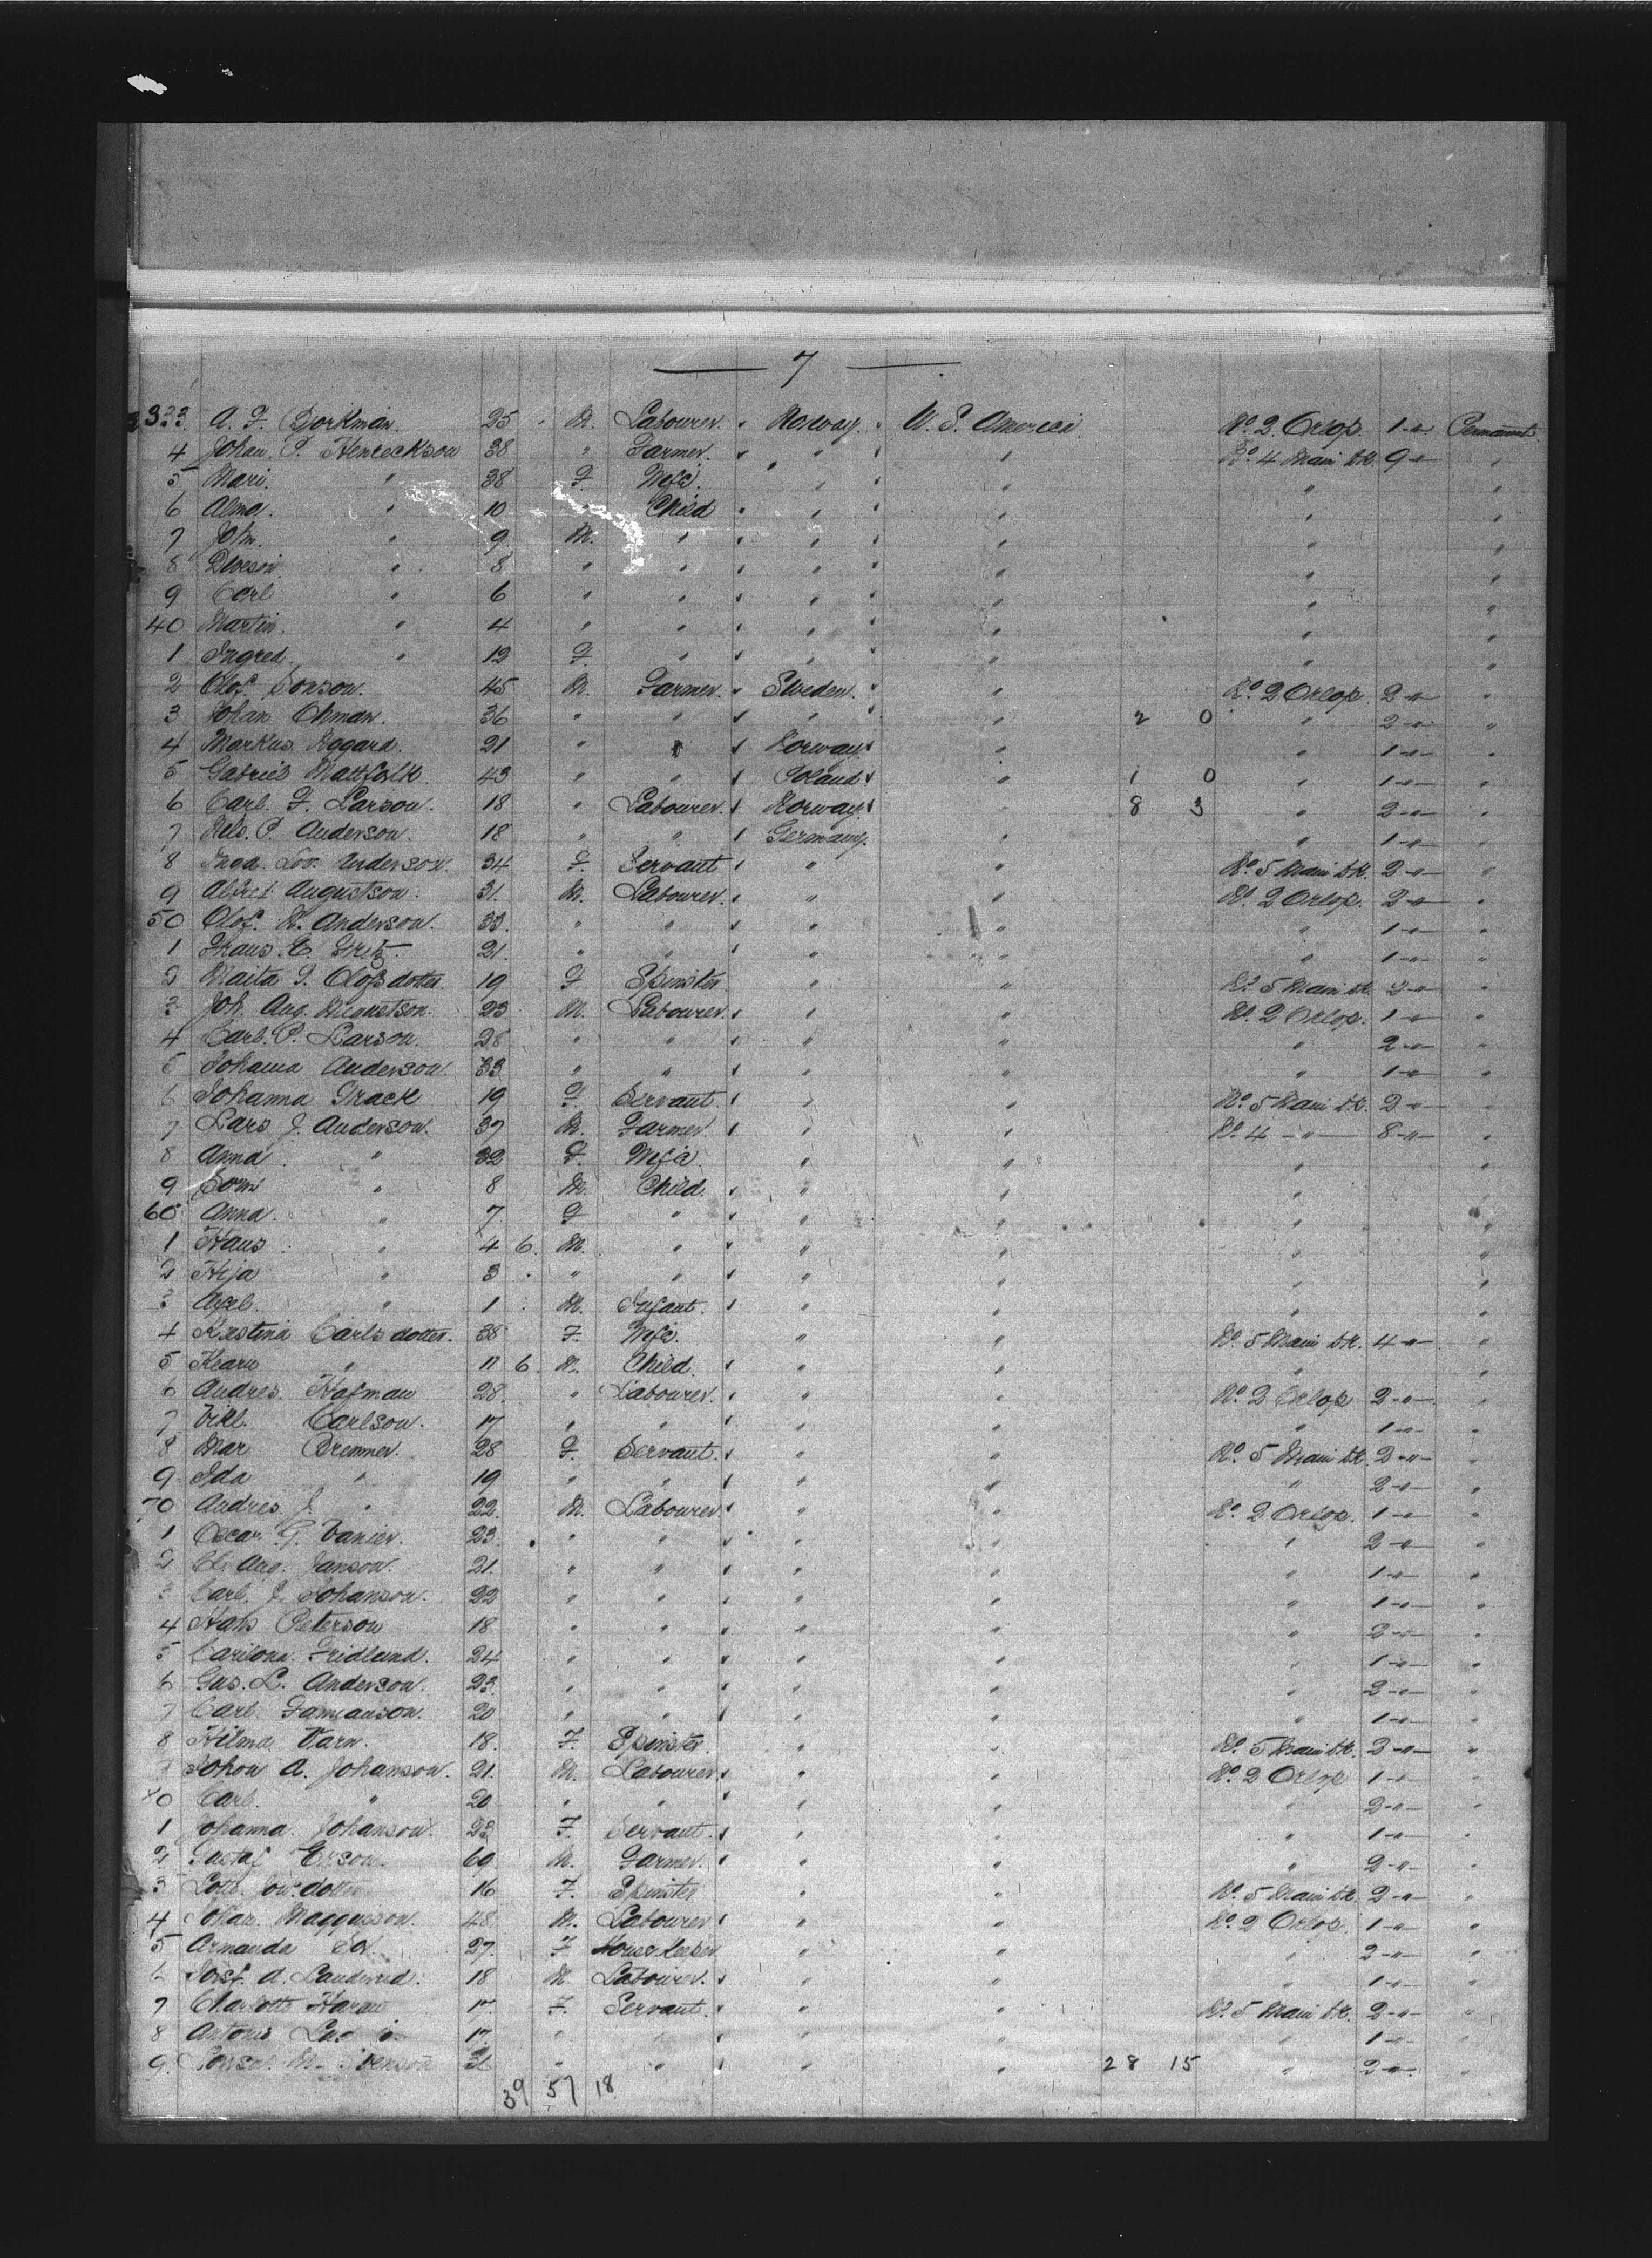 7
333 A. F. Dorkman. 25 M. Labourer. Norway. U. S. America No. 2 Orlop. 1 -"- Permanent
4 Johan. P. Henreckson 38 " Farmer. " " No. 4 Main Dk. 9 -"- "
5 Mari. " 38 F. Wife. " " " "
6 Alma. " 10 " Child " " " "
7 John. " 9 M. " " " " "
8 " 8 " " " " " "
9 Carl " 6 " " " " " "
40 Martin. " 4 " " " " " "
1 Ingred " 12 F. " " " " "
2 Olof. Sonson. 45 M. Farmer. Sweden. " No. 2 Orlop. 2 -"- "
3 Johan Ohman. 36 " " " " 2 0 " 2 -"- "
4 Markus Aggard. 21 " " Norway. " " 1 -"- "
5 Gabriel Mattfolk 43 " " " 1 0 " 1 -"- "
6 Carl. F. Larson. 18 " Labourer. Norway. 8 3 " 2 -"- "
7 Nels. P. Anderson. 18 " " Germany. " " 1 -"- "
8 Anderson. 34 F. Servant " " No. 5 Main Dk. 2 -"- "
9 Alfret Augustson. 31. M. Labourer. " " No. 2 Orlop. 2 -"- "
50 Olof. A. Anderson. 33. " " " " " 1 -"- "
1 21. " " " " " 1 -"- "
2 Maita Olofsdotter 19 F Spinster " " No. 5 Main dk. 2 -"- "
3 Joh. Aug. 23 M. Labourer. " " No. 2 Orlop. 1 -"- "
4 Carl. P. Larson. 28 " " " " " 2 -"- "
5 Anderson. 33 " " " " " 1 -"- "
6 Johanna Grack 19 F. Servant. " " No. 5 Main Dk. 2 -"- "
7 Lars J. Anderson. 37 M. Farmer. " " No. 4 -"- 8 -"- "
8 Anna. " 32 F. Wife " " " "
9 " 8 M. Child. " " " "
60 Anna. " 7 F " " " " "
1 Hans " 4 6. M. " " " " "
2 " 3 " " " " " "
3 Axel. " 1 M. Infant. " " " "
4 Carlsdotter. 38 F. Wife. " " No. 5 Main Dk. 4 -"- "
5 " 11 6. M. Child. " " " "
6 Andres. Hofman 28. " Labourer. " " No. 2 Orlop 2 -"- "
7 Carlson. 17 " " " " " 1 -"- "
8 Mar Bremmer. 28 F. Servant. " " No. 5 Main Dk. 2 -"- "
9 Ida " 19 " " " " " 2 -"- "
70 Andres. J " 22. M. Labourer " " No. 2 Orlop. 1 -"- "
1 Oscar. G. Vanier. 23. " " " " " 2 -"- "
2 Aug. Janson. 21. " " " " " 1 -"- "
3 Carl. J. Johanson. 22 " " " " " 1 -"- "
4 Hans Peterson 18 " " " " " 2 -"- "
5 Fridlund. 24 " " " " " 1 -"- "
6 Gus. L. Anderson. 23. " " " " " 2 -"- "
7 Carl 20 " " " " " 1 -"- "
8 Hilma Varn. 18. F. Spinster. " " No. 5 Main Dk. 2 -"- "
9 Johon A. Johanson. 21. M. Labourer. " " No. 2 Orlop 1 -"- "
80 Carl. " 20 " " " " " 2 -"- "
1 Johanna. Johanson. 23 F. Servant. " " " 1 -"- "
2 Gustaf Erson. 60. M. Farmer. " " " 2 -"- "
3 16 F. Spinster " " No. 5 Main Dk. 2 -"- "
4 Johan. Maggusson. 48. M. Labourer " " No. 2 Orlop. 1 -"- "
5 Armanda 27. F House keeper " " " 2 -"- "
6 A. 18 M. Labourer. " " " 1 -"- "
7 Charlotte 17. F. Servant. " " No. 5 Main Dk. 2 -"- "
8 17. " " " " " 1 -"- "
9. 36 " " " " 28 15 " 2 -"- "
39 57 18